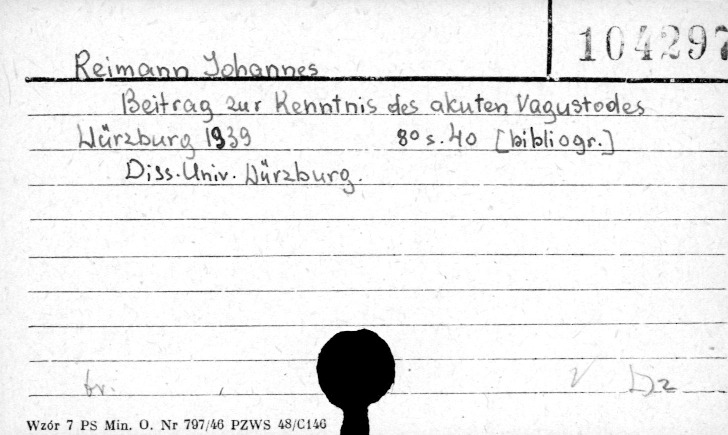 104297
Reimann Johannes
Beitrag zur Kenntnis des akuten Vagustodes
Würzburg 1939 8° s. 40 [bibliogr.]
Diss. Univ. Würzburg.
Dz
Wzór 7 PS Min. O. Nr 797/46 PZWS 48/C146